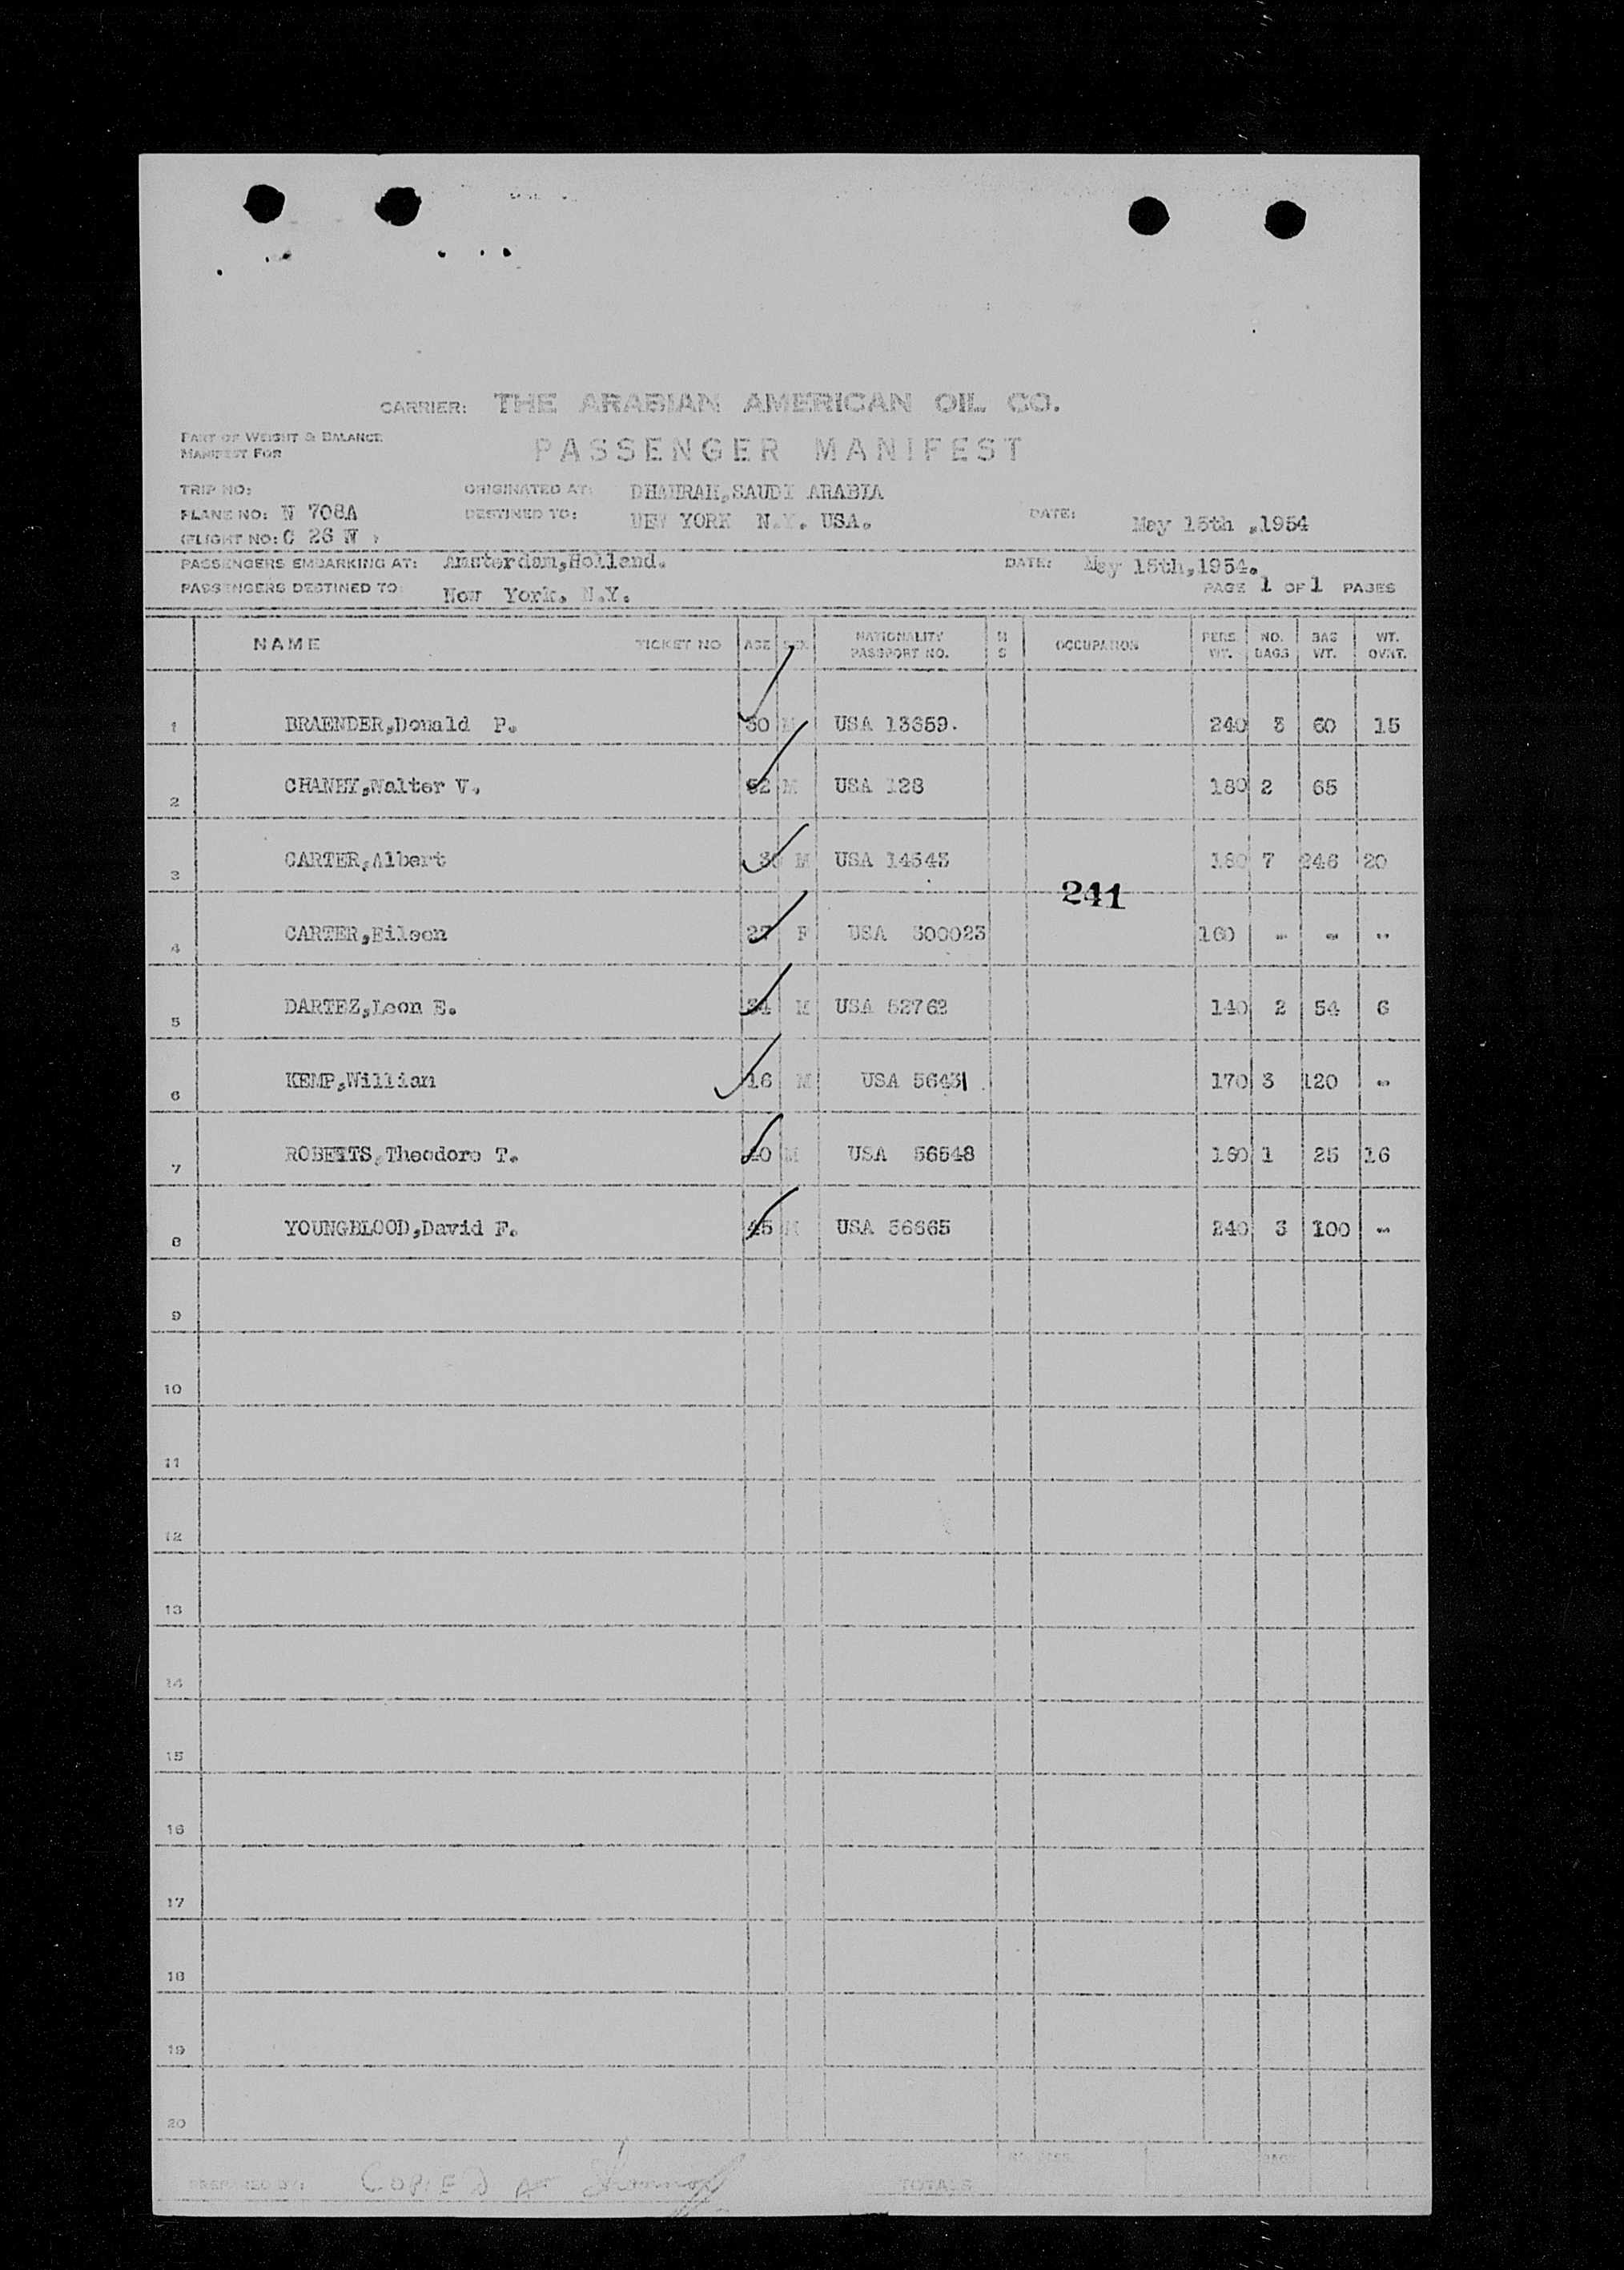 CARRIER: THE ARABIAN AMERICAN OIL CO.
PART OF WEIGHT & BALANCE
MANIFEST FOR
PASSENGER MANIFEST
TRIP NO: ORIGINATED AT: DHAHRAH,SAUDI ARABIA
PLANE NO: N 708A DESTINED TO: NEW YORK N.Y. USA. DATE: May 15th ,1954
FLIGHT NO: C 26 N
PASSENGERS EMBARKING AT: Amsterdam,Holland. DATE: May 15th,1954.
PASSENGERS DESTINED TO: New York. N.Y. PAGE 1 OF 1 PAGES
NAME TICKET NO AGE SEX NATIONALITY PASSPORT NO. M S OCCUPATION PERS. WT. NO. BAGS BAG WT. WT. OVWT.
1 BRAENDER,Donald P. 30 M USA 13659. 240 3 60 15
2 CHANEY,Walter V. 52 M USA 128 180 2 65
3 CARTER,Albert M USA 14545 180 7 246 20
241
4 CARTER,Eileen 27 F USA 300023 160 - - -
5 DARTEZ,Leon E. 34 M USA 52762 140 2 54 6
6 KEMP,Willian 16 M USA 56431 170 3 120 -
7 ROBERTS,Theodore T. 40 M USA 56548 160 1 25 16
8 YOUNGBLOOD,David F. 45 M USA 56665 240 3 100 -
9
10
11
12
13
14
15
16
17
18
19
20
PREPARED BY: COPIED AT Shannon TOTALS